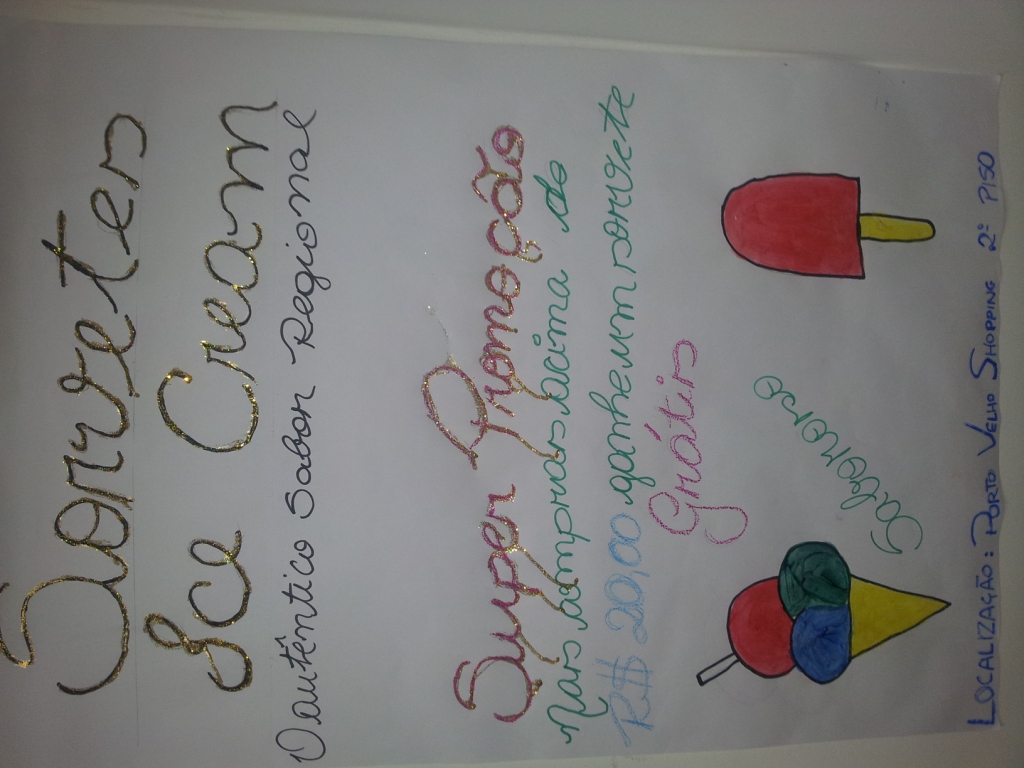 Sorvetes
Ice Cream
O autêntico Sabor Regional
Super Promoção
Nas compras acima de
R$ 20,00 ganhe um sorvete
Grátis
Saborose
LOCALIZAÇÃO: PORTO VELHO SHOPPING 2º PISO